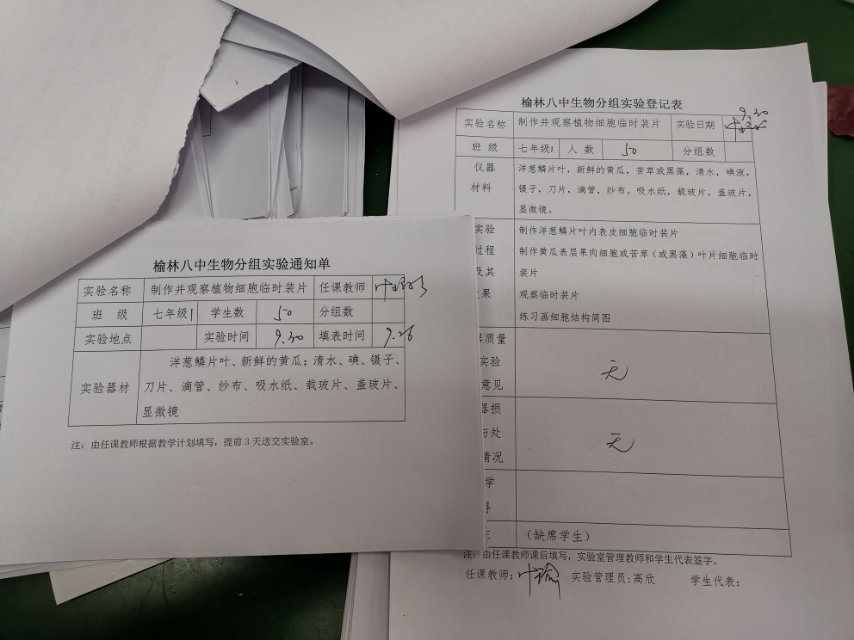 榆林八中生物分组实验通知单
实验名称 制作并观察植物细胞临时装片 任课教师
班 级 七年级1 学生数 50 分组数
实验地点 实验时间 9.30 填表时间 9.26
实验器材
洋葱鳞片叶、新鲜的黄瓜;清水、碘、镊子、
刀片、滴管、纱布、吸水纸、载玻片、盖玻片、
显微镜
注:由任课教师根据教学计划填写,提前3天送交实验室。
榆林八中生物分组实验登记表
实验名称 制作并观察植物细胞临时装片 实验日期 9.30
班 级 七年级1 人 数 50 分组数
仪器 洋葱鳞片叶,新鲜的黄瓜,苦草或黑藻,清水,碘液,
材料 镊子,刀片、滴管、纱布、吸水纸、载玻片、盖玻片,
显微镜。
实验 制作洋葱鳞片叶内表皮细胞临时装片
过程 制作黄瓜表层果肉细胞或苦草(或黑藻)叶片细胞临时
及其 装片
果 观察临时装片
练习画细胞结构简图
质量
实验 无
意见
器损
与处 无
情况
学
(缺席学生)
注:由任课教师课后填写,实验室管理教师和学生代表签字。
任课教师: 实验管理员:高欣 学生代表: